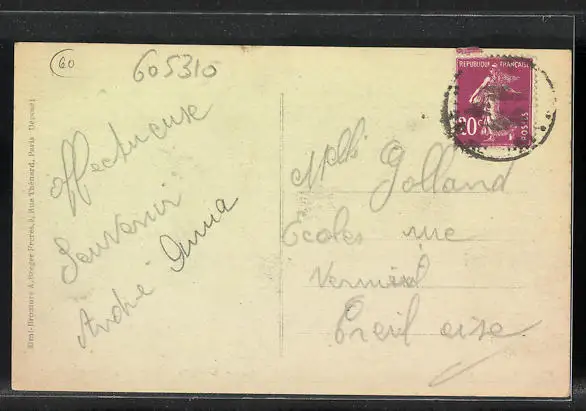 60
605310
REPUBLIQUE FRANÇAISE
20c
POSTES
affectueuse
Souvenir
André Anna
Melle Golland
Ecoles rue
Vermiel
Creil oise
Breger Frères, 9, Rue Thénard, Paris Déposé